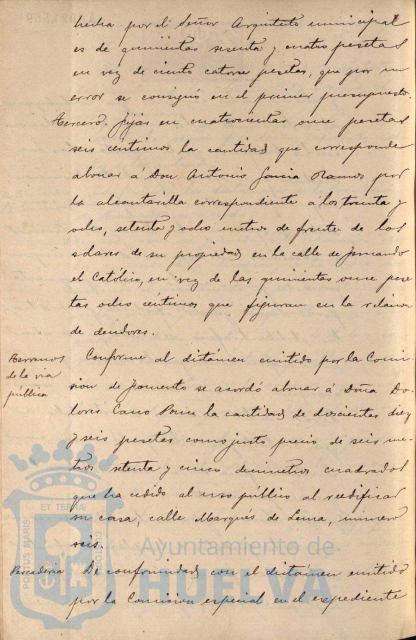 hecha por el Señor Arquitecto municipal
es de quinientas sesenta y cuatro pesetas
en vez de ciento catorce pesetas, que por un
error se consignó en el primer presupuesto.
Tercero. Fijar en cuatrocientas once pesetas
seis centimos la cantidad que corresponde
abonar á Don Antonio Garcia Ramos por
la alcantarilla correspondiente á los treinta y
ocho, setenta y ocho metros de frente de los
solares de su propiedad en la calle de Fernando
el Católico, en vez de las quinientas once pese
tas ocho céntimos que figuran en la relacion
de deudores.
Terrenos
de la via
pública
Conforme al dictámen emitido por la Comi
sion de Fomento se acordó abonar á Doña Do
lores Cano Ponce la cantidad de doscientas diez
y seis pesetas como justo precio de seis me
tros setenta y cinco decimetros cuadrados
que ha cedido al uso público al reedificar
su casa, calle Marqués de Lema, número
seis.
Pescaderia
De conformidad con el dictámen emitido
por la Comision especial en el expediente
PORTUS MARIS
ET TERRAE
CUSTODIA
Ayuntamiento de
HUELVA